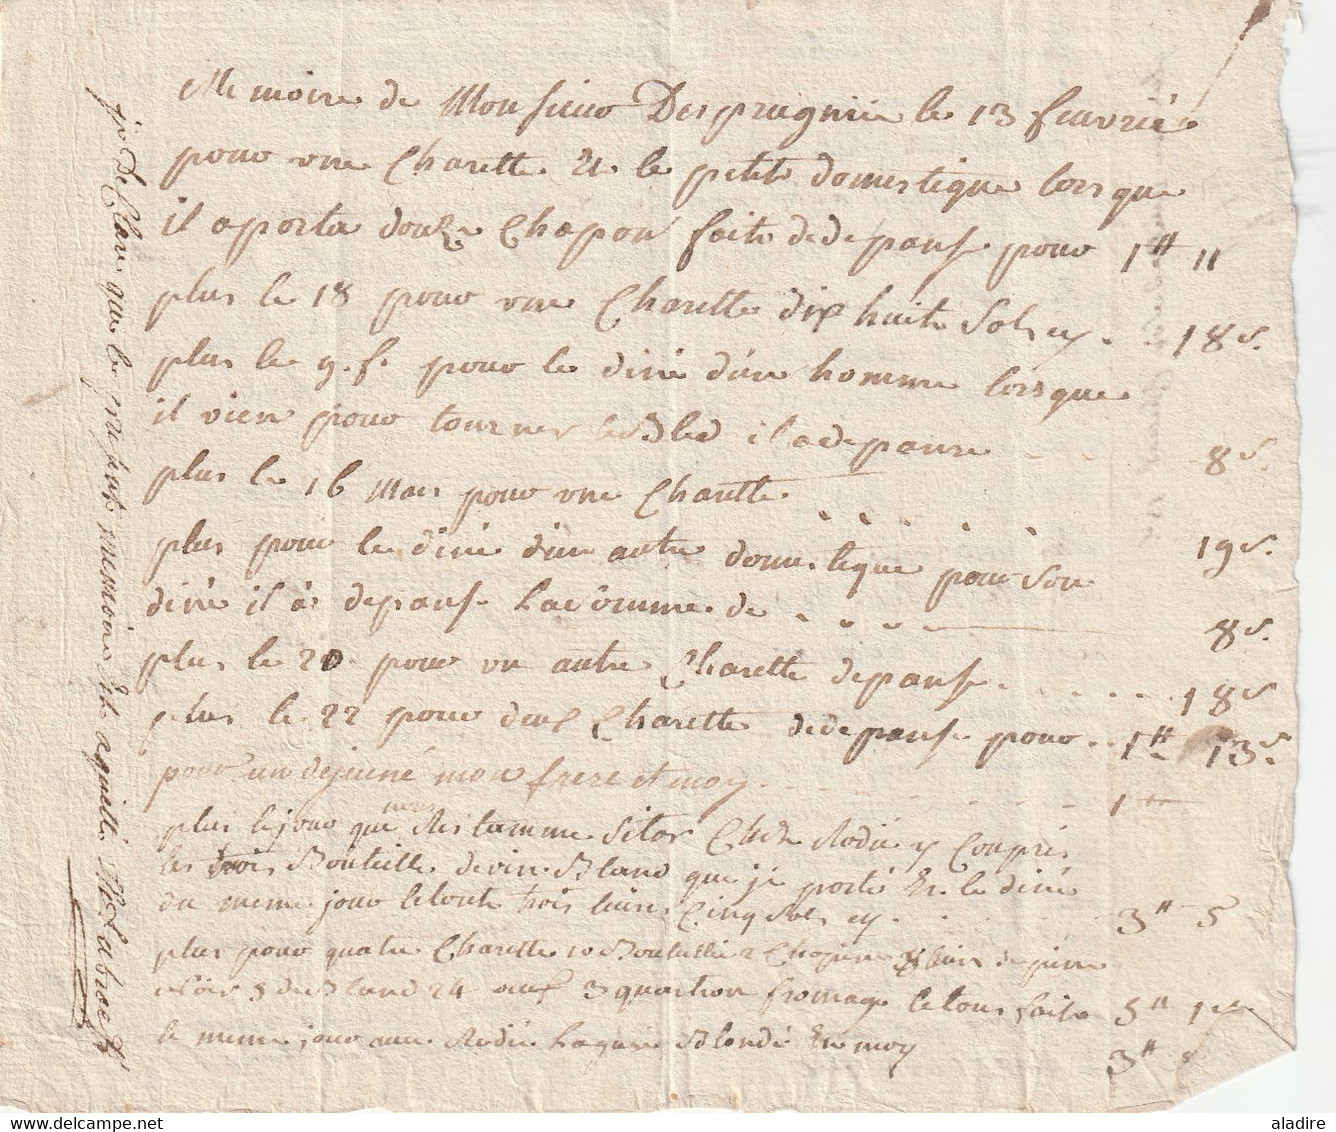 Memoire de Monsieur Despruignié le 13 feuvrié
pour une Charette Et le petit domestique lorsque
il aporta douze Chapon faite de depanse pour 1# 11
plus le 18 pour une Charette dix huit Sols cy. 18 s.
plus le 9. f. pour le diné d'un homme lorsque
il vien pour tourner le Bled il a depance 8 s.
plus le 16 Mars pour une Charette 19 s.
plus pour le diné d'un autre domestique pour Son
diné il à depanse La somme de 8 s.
plus le 20 pour un autre Charette depanse 18 s
plus le 22 pour deux Charette de depanse pour 1# 13 s
pour un dejeuné mon frere et moy 1#
plus le jour que nous Chez Rodié y Compris
les trois Bouteille de vin Bland que je porté Et le diné
du meme jour le tout trois livre Cinq Sols cy 3# 5
plus pour quatre Charette 10 Bouteille 2 Chopine
5 de Bland 24 oeuf 3 quartron fromage le tout faite 5# 1
le meme jour avec Rodié Blondé Et moy 3#
je declare que le present memoire Et aquitté Labresse
aladire
www.delcampe.net